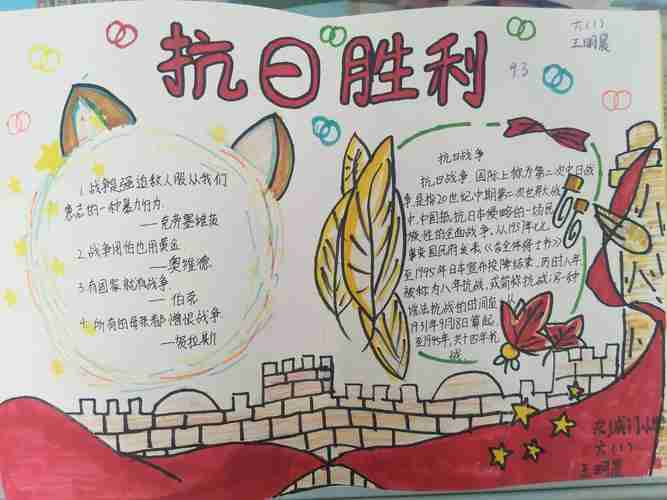 抗日胜利
六(1)
王明晨
9.3
1.战争强迫敌人服从我们
意志的一种暴力行为.
——克劳塞维茨
2.战争用的也用黄金
——奥维德
3.有国家就有战争.
——伯克
4.所有的母亲都憎恨战争
——贺拉斯
抗日战争
抗日战争 国际上称为第二次中日战
争.是指20世纪中期第二次世界大战
中,中国抵抗日本侵略的一场民
族性的全面战争.从1931年七七
至1945年日本宣布投降结束.历时八年
被称为八年抗战,或简称抗战;另一种
说法抗战的时间自
1931年9月18日算起,
至1945年,共十四年抗
战.
六(1)
王明晨